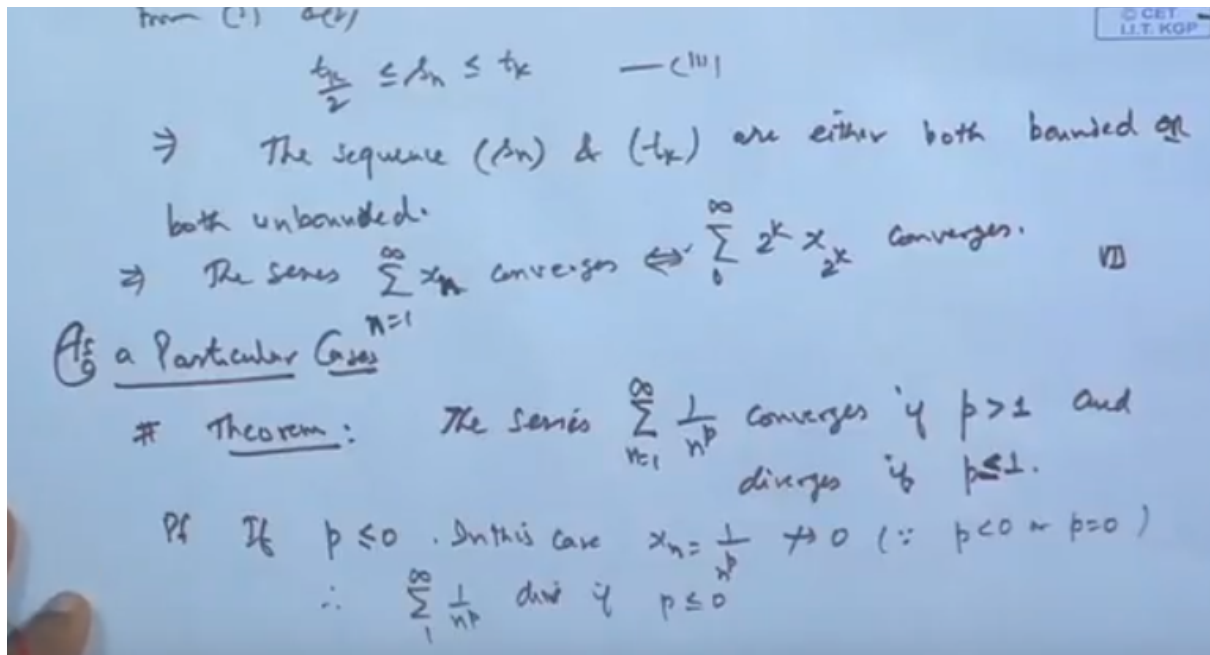 © CET
I.I.T. KGP
From (I) &(II)
t_k/2 ≤ s_n ≤ t_k —(III)
⇒ The sequence (s_n) & (t_k) are either both bounded or
both unbounded.
⇒ The series ∑_{n=1}^∞ x_n converges ⇔ ∑_0^∞ 2^k x_{2^k} converges.
As a Particular Cases
# Theorem: The series ∑_{n=1}^∞ 1/n^p converges if p>1 and
diverges if p≤1.
Pf If p≤0. In this case x_n = 1/n^p ↛ 0 (∵ p<0 or p=0)
∴ ∑_1^∞ 1/n^p div if p≤0